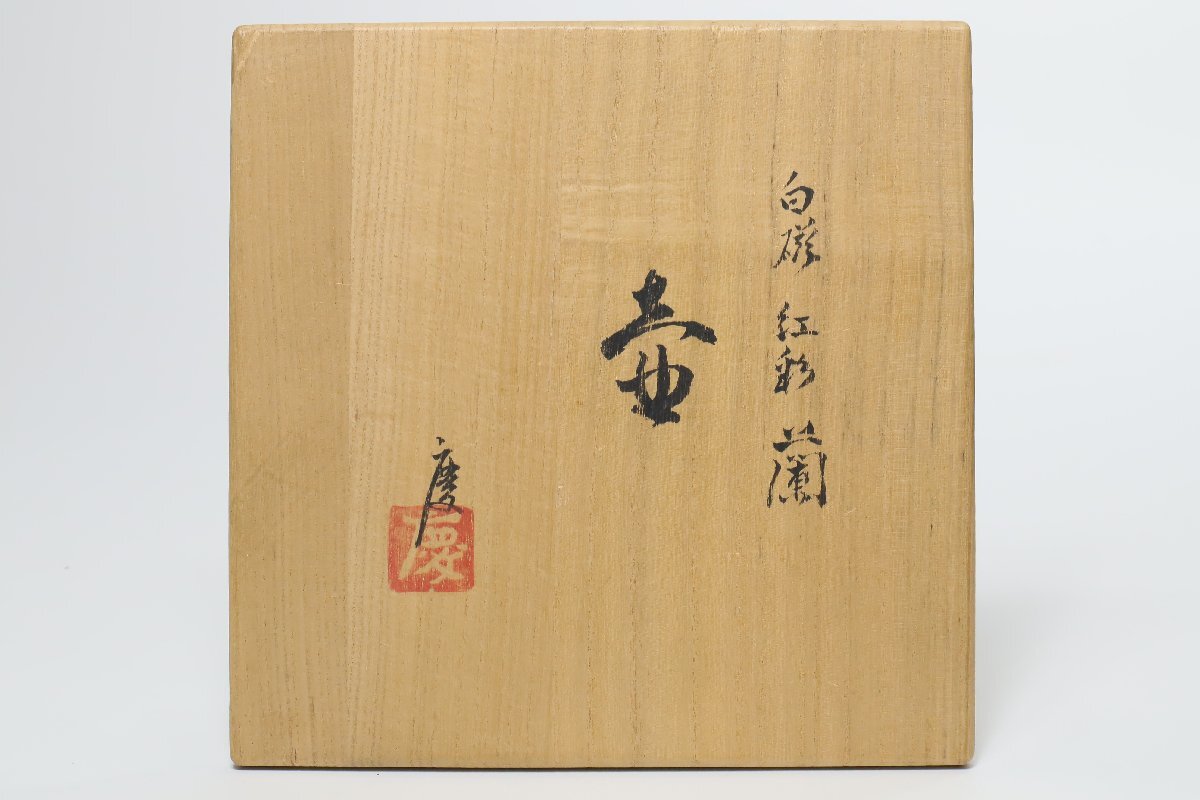 白磁 紅彩 蘭
壷
慶
慶